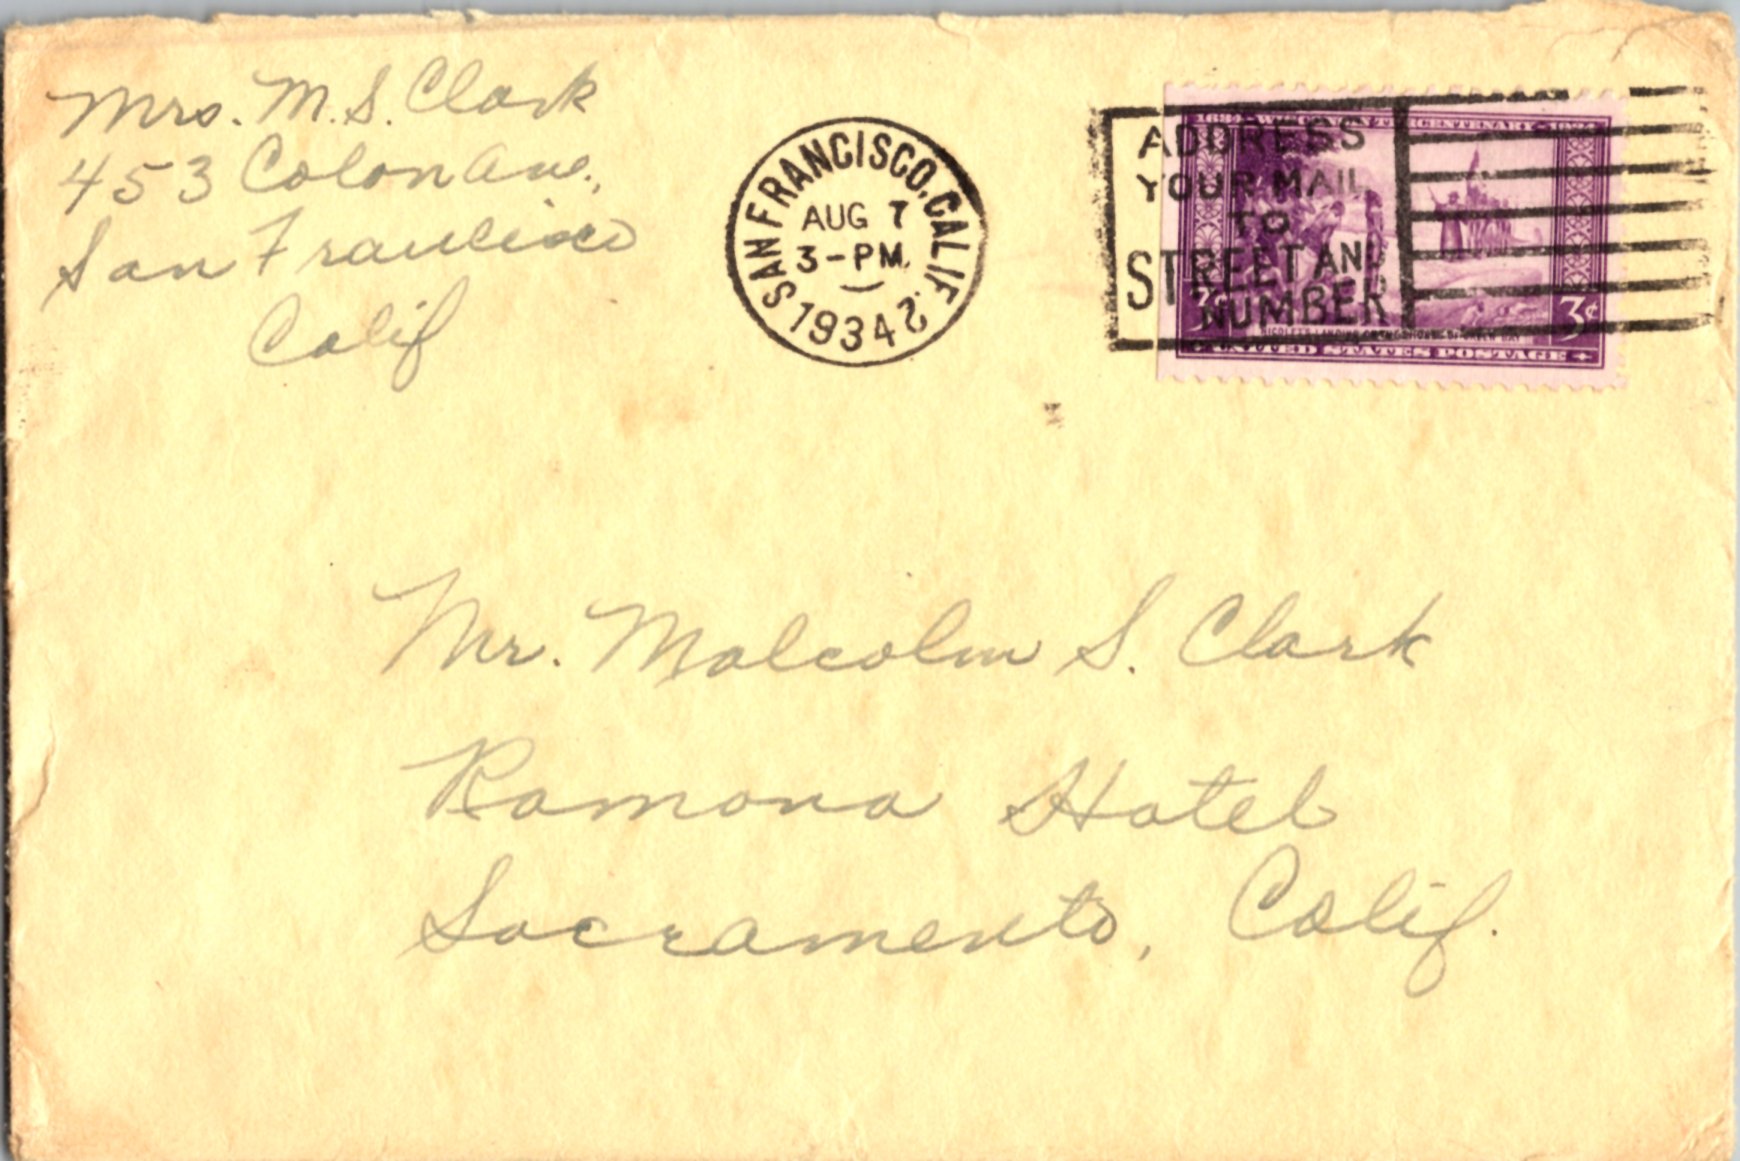 Mrs. M. S. Clark
453 Colon Ave.,
San Francisco
Calif
SAN FRANCISCO, CALIF. 2
AUG 7
3-PM
1934
ADDRESS
YOUR MAIL
TO
STREET AND
NUMBER
WISCONSIN TERCENTENARY
3¢ 3¢
NICOLET'S LANDING
UNITED STATES POSTAGE
Mr. Malcolm S. Clark
Ramona Hotel
Sacramento, Calif.